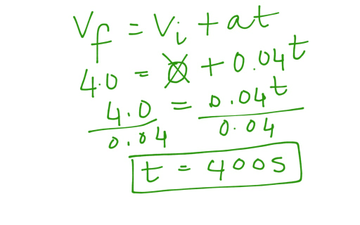 Vf = Vi + at
4.0 = 0 + 0.04t
4.0 = 0.04t
0.04 0.04
t = 400s